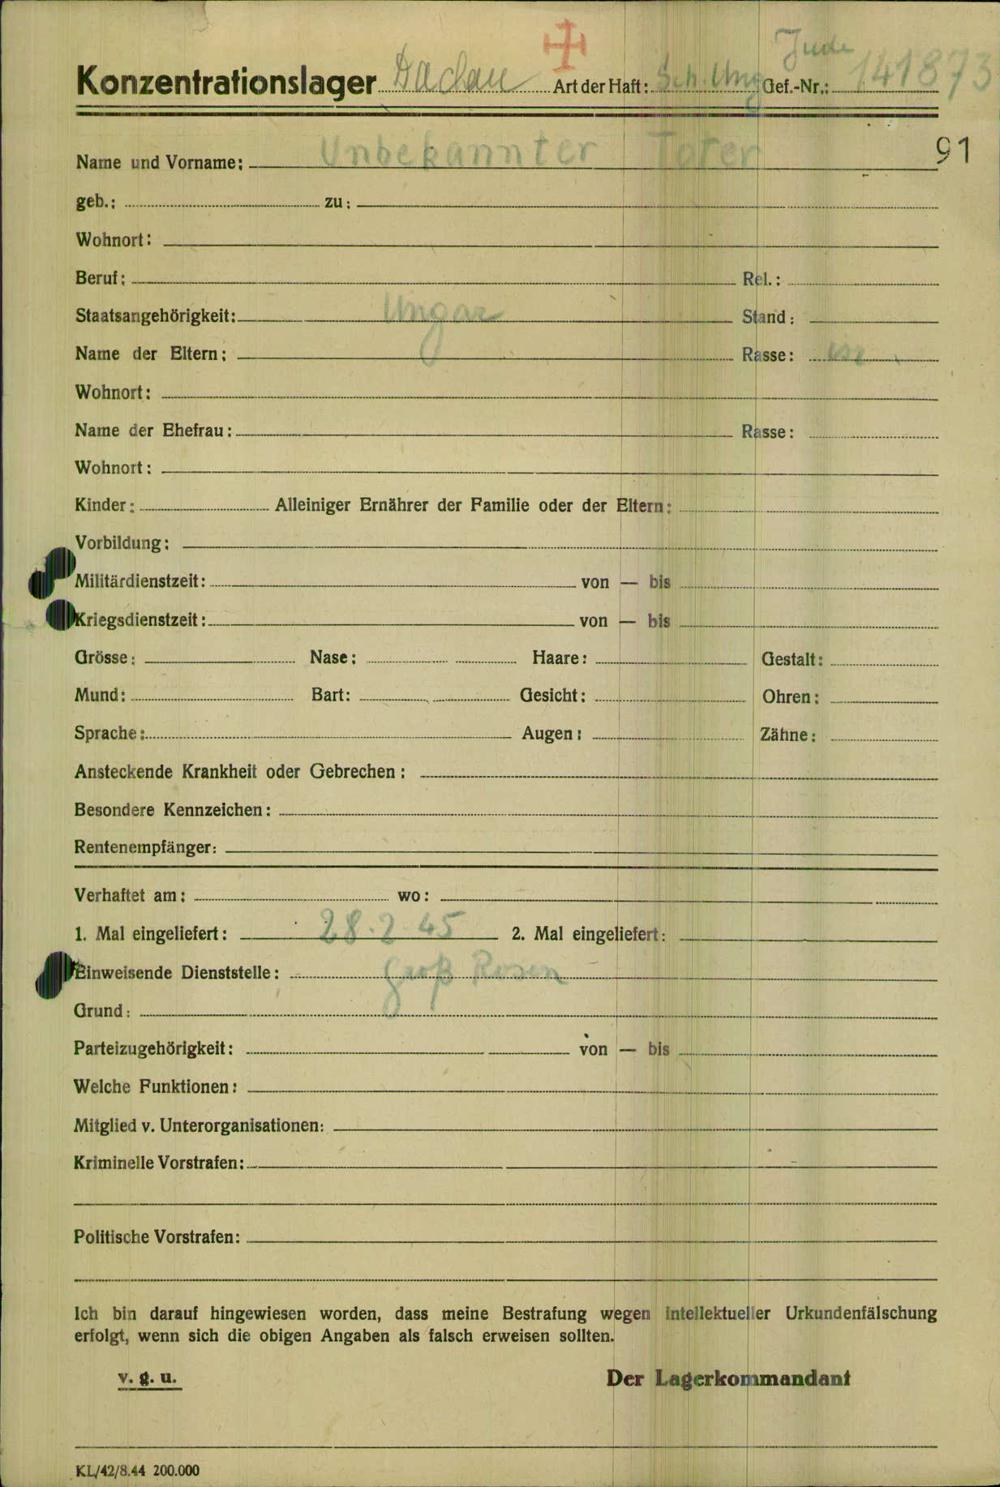 Jude
Konzentrationslager Dachau Art der Haft: Sch. Ung. Gef.-Nr.: 141873
91
Name und Vorname: Unbekannter Toter
geb.: zu:
Wohnort:
Beruf: Rel.:
Staatsangehörigkeit: Ungar Stand:
Name der Eltern: Rasse: isr.
Wohnort:
Name der Ehefrau: Rasse:
Wohnort:
Kinder: Alleiniger Ernährer der Familie oder der Eltern:
Vorbildung:
Militärdienstzeit: von — bis
Kriegsdienstzeit: von — bis
Grösse: Nase: Haare: Gestalt:
Mund: Bart: Gesicht: Ohren:
Sprache: Augen: Zähne:
Ansteckende Krankheit oder Gebrechen:
Besondere Kennzeichen:
Rentenempfänger:
Verhaftet am: wo:
1. Mal eingeliefert: 28.2.45 2. Mal eingeliefert:
Einweisende Dienststelle: Groß Rosen
Grund:
Parteizugehörigkeit: von — bis
Welche Funktionen:
Mitglied v. Unterorganisationen:
Kriminelle Vorstrafen:
Politische Vorstrafen:
Ich bin darauf hingewiesen worden, dass meine Bestrafung wegen intellektueller Urkundenfälschung
erfolgt, wenn sich die obigen Angaben als falsch erweisen sollten.
v. g. u. Der Lagerkommandant
KL/42/8.44 200.000